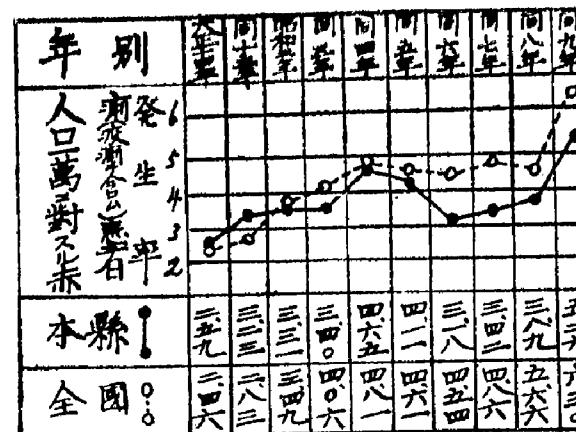 年別 大正十四年 同十五年 昭和二年 同三年 同四年 同五年 同六年 同七年 同八年 同九年
人口一萬ニ對スル赤
痢(疫痢ヲ含ム)患者
発生率
6
5
4
3
2
本縣 二.五九 三.二三 三.三一 三.四〇 四.六五 四.一一 三.一八 三.四二 三.八九
全國 二.四六 二.八三 三.四九 四.〇六 四.八一 四.六一 四.五四 四.八六 五.六六